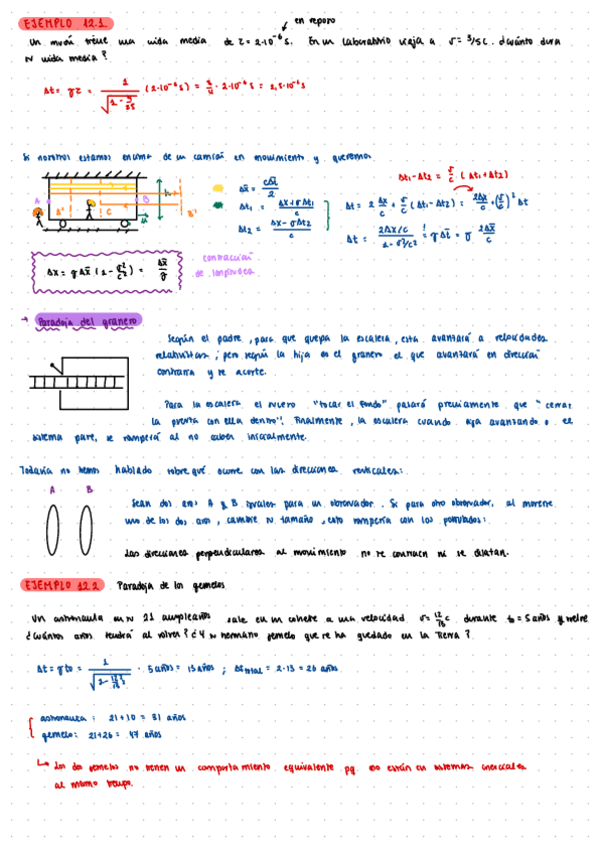 EJEMPLO 12.1
en reposo
Un muón tiene una vida media de τ = 2·10⁻⁶ s. En un laboratorio viaja a v = 3/5 c. ¿Cuánto dura
su vida media?
Δt = γτ = 1/√(1 - 9/25) (2·10⁻⁶ s) = 5/4 · 2·10⁻⁶ s = 2,5·10⁻⁶ s
Si nosotros estamos encima de un camión en movimiento y queremos
Δt₁ - Δt₂ = v/c (Δt₁ + Δt₂)
A A' C B B' h u
Δx̄ = cΔt̄/2
Δt₁ = (Δx + vΔt₁)/c
Δt₂ = (Δx - vΔt₂)/c
Δt = 2 Δx/c + v/c (Δt₁ - Δt₂) = 2Δx/c + (v/c)² Δt
Δt = (2Δx/c)/(1 - v²/c²) = γ Δt̄ = γ 2Δx̄/c
Δx = γ Δx̄ (1 - v²/c²) = Δx̄/γ
contracción
de longitudes
→ Paradoja del granero
Según el padre, para que quepa la escalera, esta avanzará a velocidades
relativistas, pero según la hija es el granero el que avanzará en dirección
contraria y se acorte.
Para la escalera el suceso "tocar el fondo" pasará previamente que "cerrar
la puerta con ella dentro". Finalmente, la escalera cuando siga avanzando o el
sistema pare, se romperá al no caber inicialmente.
Todavía no hemos hablado sobre qué ocurre con las direcciones verticales:
A B
Sean dos aros A y B iguales para un observador. Si para otro observador, al moverse
uno de los dos aros, cambie su tamaño, esto rompería con los postulados:
Las direcciones perpendiculares al movimiento no se contraen ni se dilatan.
EJEMPLO 12.2 Paradoja de los gemelos
Un astronauta en su 21 cumpleaños sale en un cohete a una velocidad v = 12/13 c durante t₀ = 5 años y vuelve
¿Cuántos años tendrá al volver? ¿Y su hermano gemelo que se ha quedado en la Tierra?
Δt = γt₀ = 1/√(1 - 12²/13²) · 5 años = 13 años ; Δt total = 2·13 = 26 años
astronauta: 21 + 10 = 31 años
gemelo: 21 + 26 = 47 años
↳ Los dos gemelos no tienen un comportamiento equivalente pq no están en sistemas inerciales
al mismo tiempo.